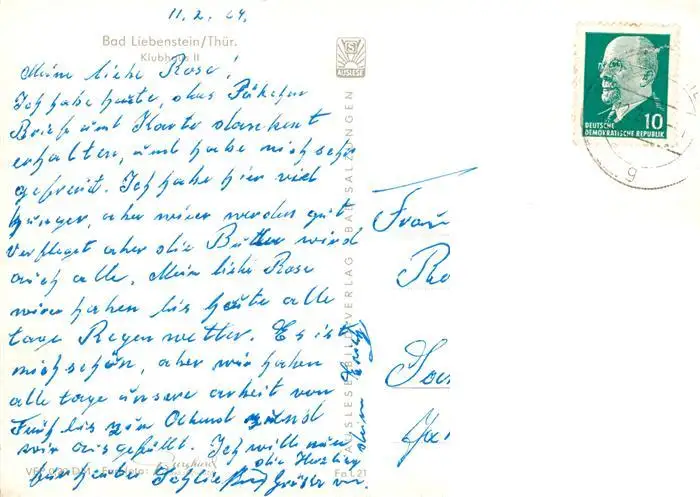 11.2.64.
Bad Liebenstein/Thür.
Klubhaus II
Meine liebe Rose!
Ich habe heute, das Päkchen
Brief und Karte dankent
erhalten, und habe mich sehr
gefreut. Ich habe hier viel
hunger, aber wir werden gut
verfleget aber die Butter wird
auch alle. Mein liebe Rose
wir haben bis heute alle
tage Regen wetter. Es ist
nich schön, aber wir haben
alle tage unsere arbeit von
Früh bis zum Obend sind
wir ausgefüllt. Ich will nun
die Herzlig
Grüße von
deine
AUSLESE-BILD-VERLAG BAD SALZUNGEN
AUSLESE
DEUTSCHE
DEMOKRATISCHE REPUBLIK
10
Frau
Fa L 21